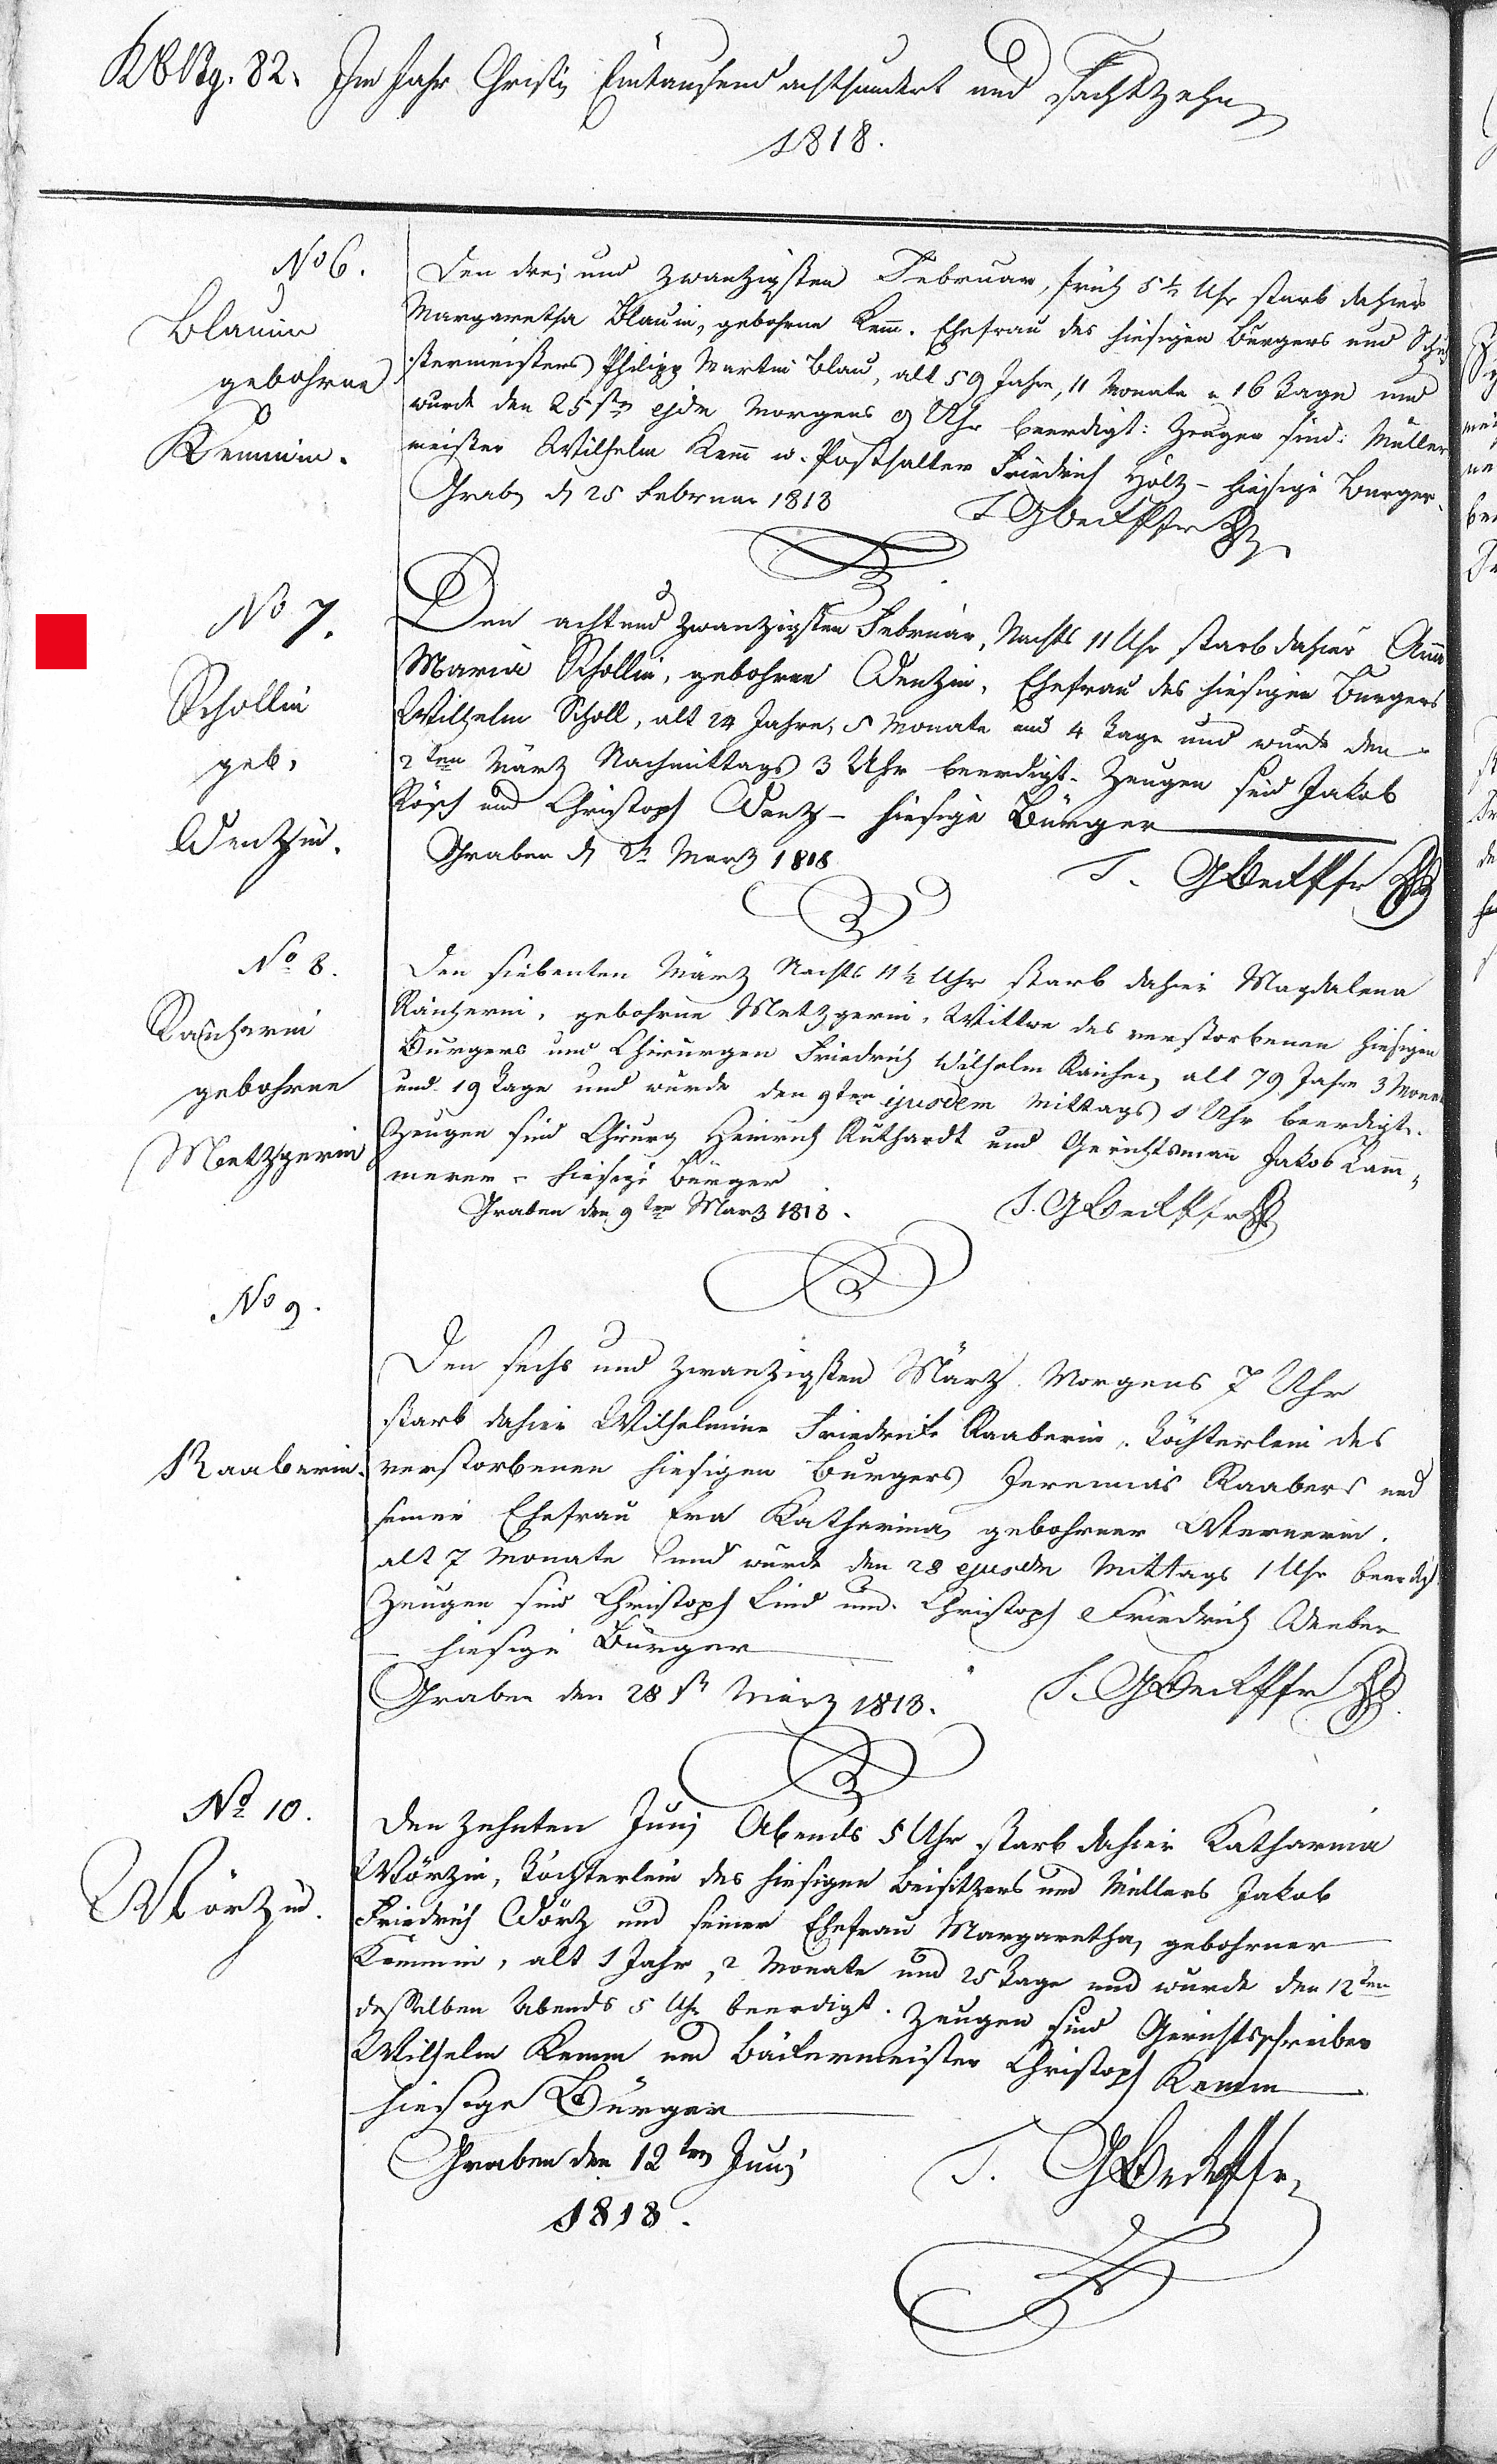 82. Im Jahr Christi Eintausend achthundert und Achtzehn
1818.
No 6.
Blauin
gebohrne
Kemmin.
Den drei und zwanzigsten Februar, früh 5½ Uhr starb dahier
Margaretha Blauin, gebohrne Kem̄. Ehefrau des hiesigen Bürgers und Schu
stermeisters Philipp Martin Blau, alt 59 Jahre, 11 Monate u 16 Tage und
wurde den 25sten ejdm Morgens 9 Uhr beerdigt: Zeugen sind: Müller
meister Wilhelm Kem̄ u. Posthalter Friedrich Holz - hiesige Bürger.
Grab. d 25 Februar 1818
No 7.
Schollin
geb.
Wenzin.
Den acht und zwanzigsten Februar, Nachts 11 Uhr starb dahier Anna
Maria Schollin, gebohrne Wenzin, Ehefrau des hiesigen Bürgers
Wilhelm Scholl, alt 24 Jahre, 5 Monate und 4 Tage und wurde den
2ten März Nachmittags 3 Uhr beerdigt. Zeugen sind Jakob
Rösch und Christoph Wenz - hiesige Bürger
Graben d März 1818
No 8.
gebohrne
Metzgerin
Den siebenten März Nachts 11½ Uhr starb dahier Magdalena
gebohrne Metzgerin, Wittwe des verstorbenen hiesigen
Bürgers und Chirurgen Friedrich Wilhelm alt 79 Jahre 3 Mona
und 19 Tage und wurde den 9ten ejusdem Mittags 1 Uhr beerdigt.
Zeugen sind Chirurg Heinrich Ruthardt und Gerichtsmann Jakob Kam̄„
merer - hiesige Bürger
Graben den 9ten März 1818.
No 9.
Raaberin.
Den sechs und zwanzigsten März Morgens 7 Uhr
starb dahier Wilhelmine Friedrike Raaberin, Töchterlein des
verstorbenen hiesigen Bürgers Jeremias Raabers und
seiner Ehefrau Eva Katharina, gebohrner Wernerin.
alt 7 Monate und wurde den 28 ejusdm Mittags 1 Uhr beerdigt
Zeugen sind Christoph Lind und Christoph Friedrich Weeber
- hiesige Bürger
Graben den 28st März 1818.
No 10.
Wörzin.
Den zehnten Junj Abends 5 Uhr starb dahier Katharina
Wörzin, Töchterlein des hiesigen Beisitzers und Müllers Jakob
Friedrich Wörz und seiner Ehefrau Margaretha, gebohrner
Kemmin, alt 1 Jahr, 2 Monate und 25 Tage und wurde den 12ten
desselben Abends 5 Uhr beerdigt. Zeugen sind Gerichtschreiber
Wilhelm Kemm und Bäckermeister Christoph Kemm
hiesige Bürger
Graben den 12ten Junj
1818.